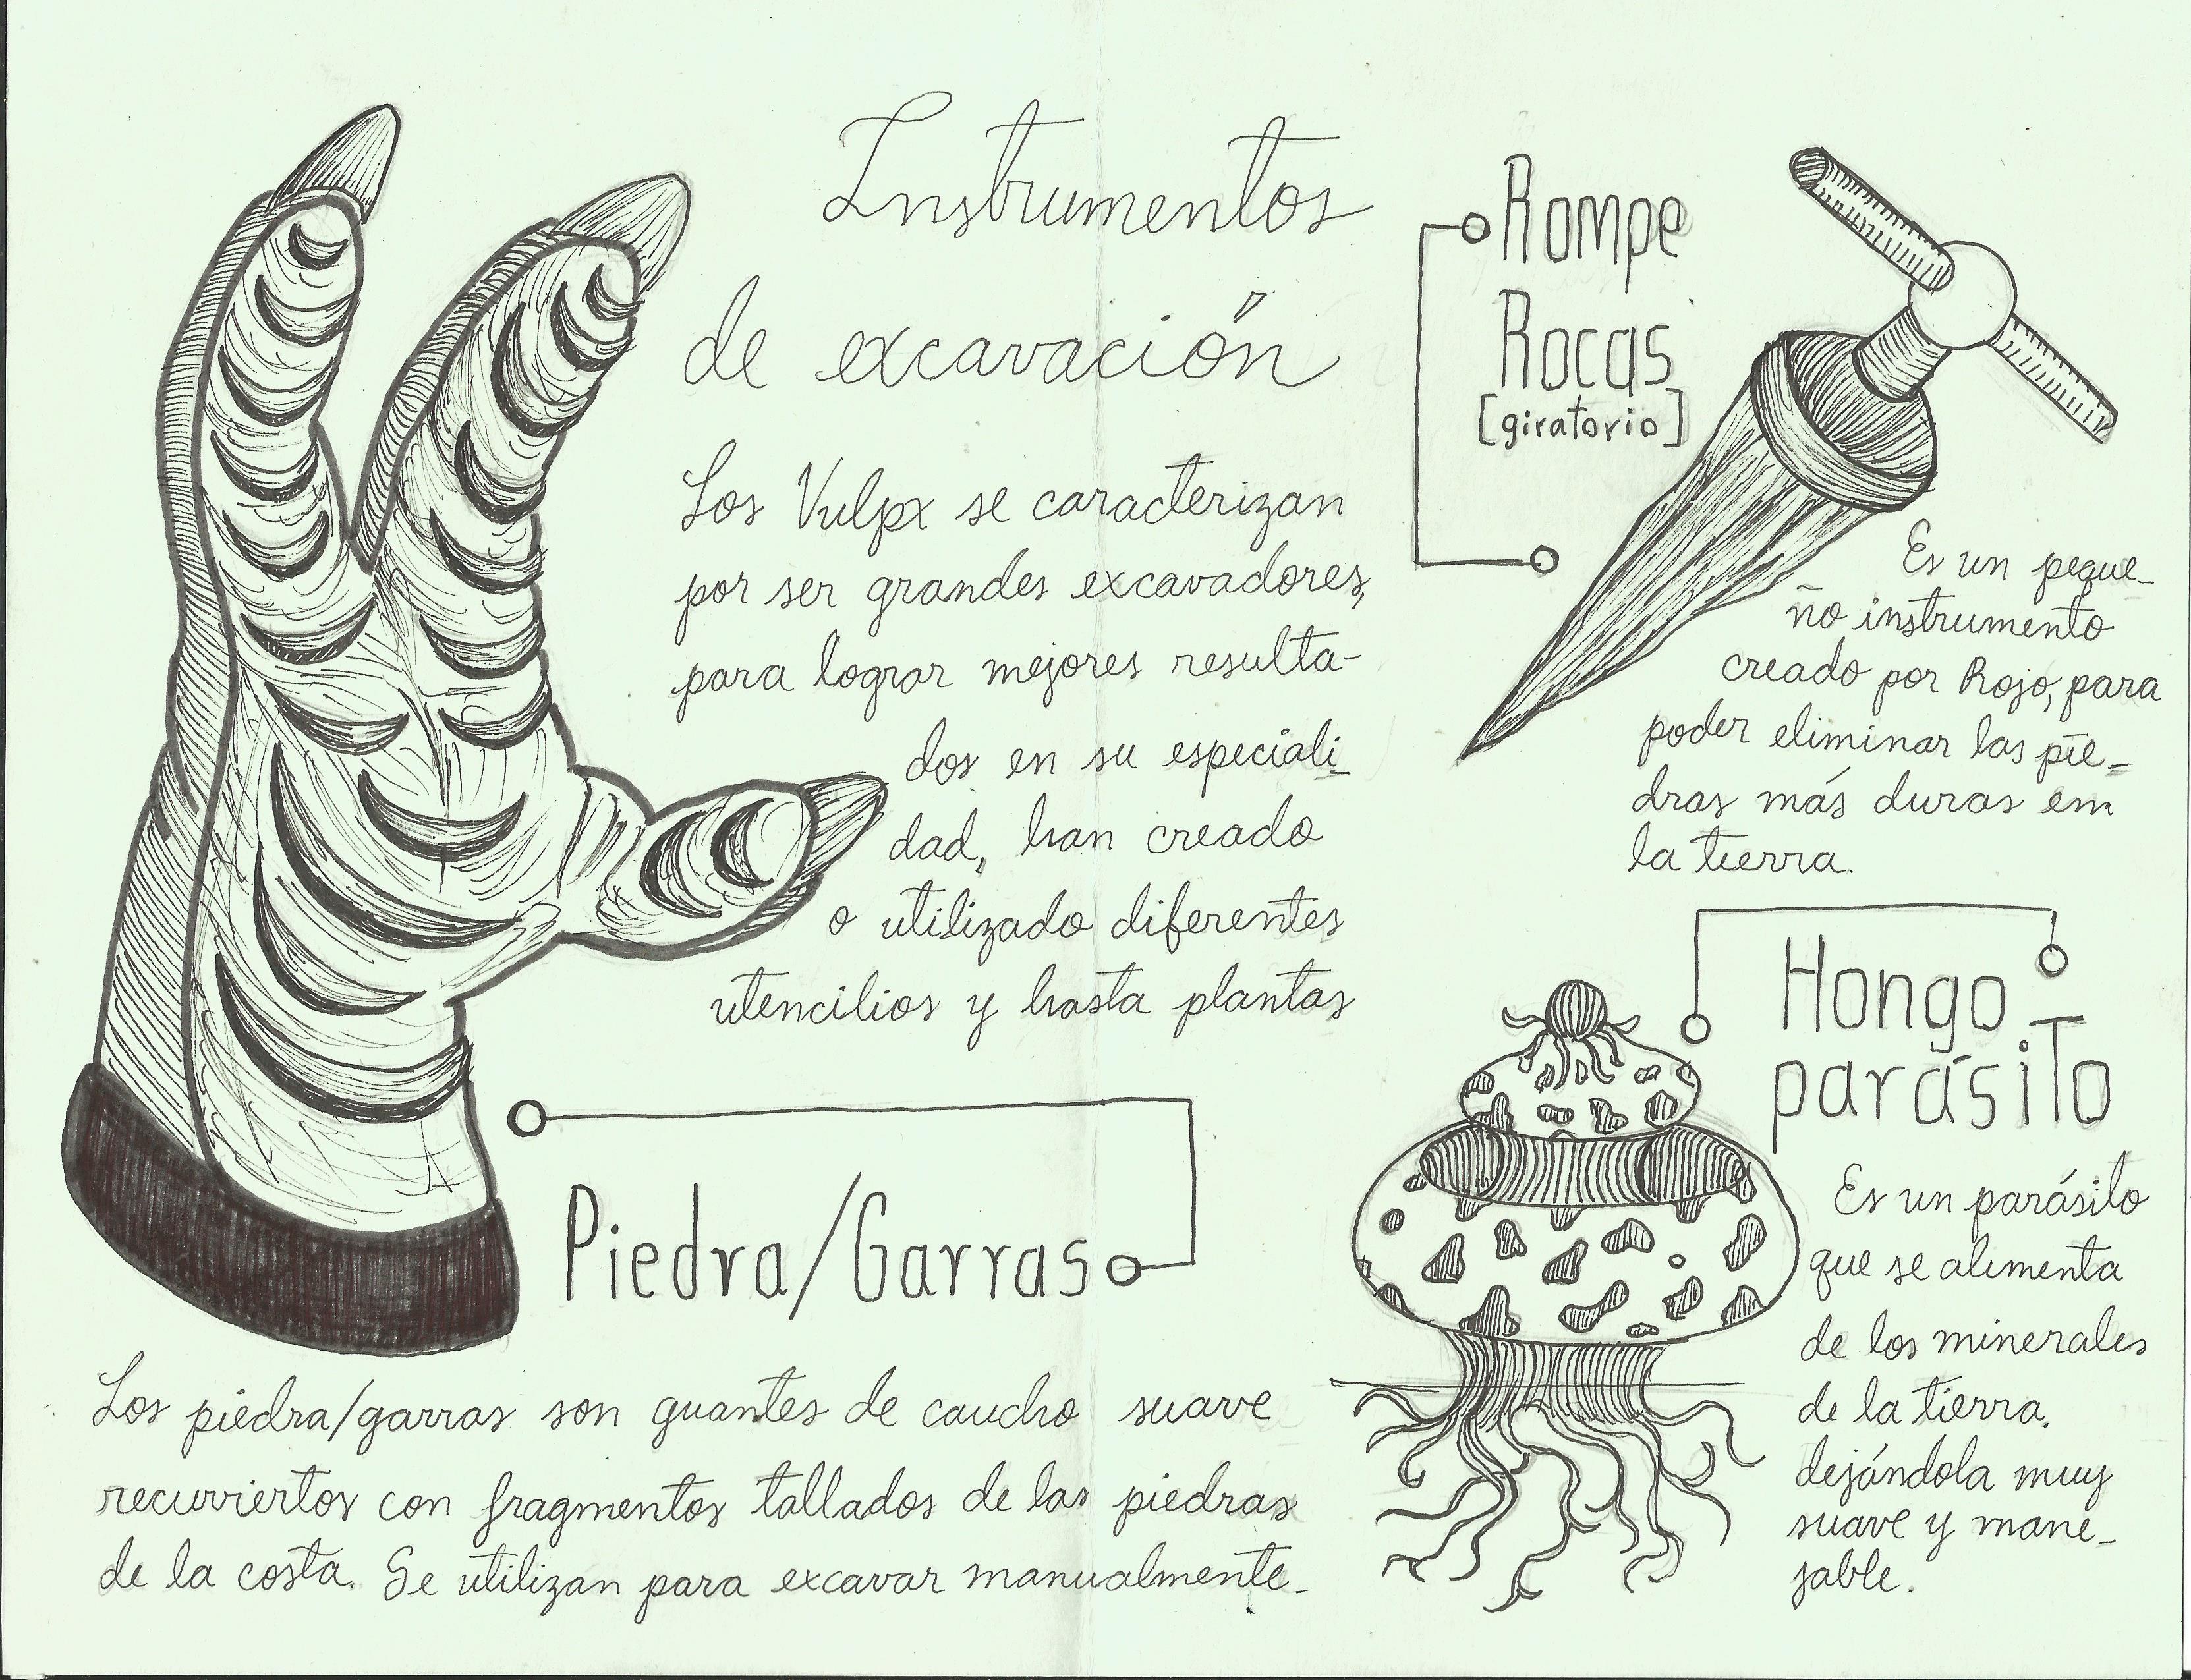 Instrumentos
de excavación
Los Vulpx se caracterizan
por ser grandes excavadores,
para lograr mejores resulta-
dos en su especiali-
dad, han creado
o utilizado diferentes
utencilios y hasta plantas
Piedra/Garras
Los piedra/garras son guantes de caucho suave
recurviertos con fragmentos tallados de las piedras
de la costa. Se utilizan para excavar manualmente.
Rompe
Rocas
[giratorio]
Es un peque-
ño instrumento
creado por Rojo, para
poder eliminar las pie-
dras más duras en
la tierra.
Hongo
parásito
Es un parásito
que se alimenta
de los minerales
de la tierra,
dejándola muy
suave y mane-
jable.